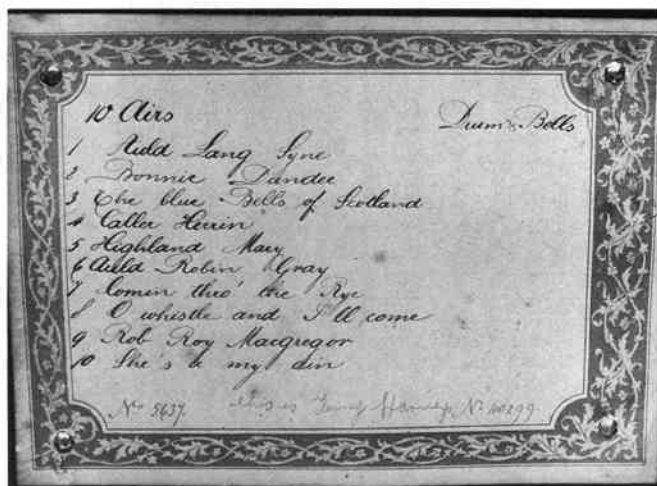 10 Airs
Drum & Bells
1 Auld Lang Syne
2 Bonnie Dundee
3 The blue Bells of Scotland
4 Caller Herrin
5 Highland Mary
6 Auld Robin Gray
7 Comin thro' the Rye
8 O whistle and I'll come
9 Rob Roy Macgregor
10 She's a my ain
No 5637. this is No 10299.